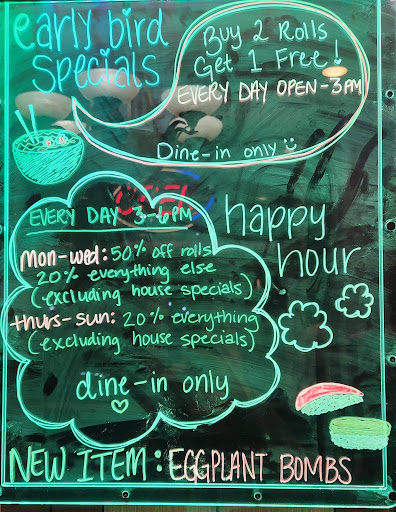 early bird
specials
Buy 2 Rolls
Get 1 Free!
EVERY DAY OPEN - 3PM
Dine-in only
EVERY DAY 3-6PM
happy
hour
mon-wed: 50% off rolls
20% everything else
(excluding house specials)
thurs-sun: 20% everything
(excluding house specials)
dine-in only
NEW ITEM: EGGPLANT BOMBS